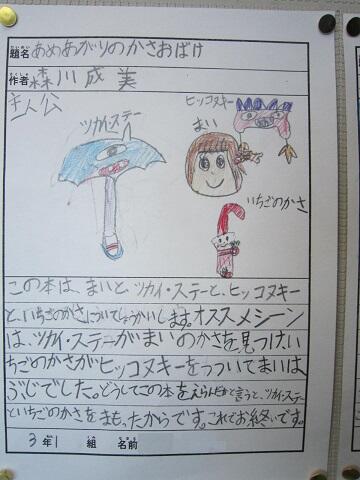 題名 あめあがりのかさおばけ
作者 森川成美
主人公
ツカイ・ステー
ヒッコヌキー
まい
いちごのかさ
この本は、まいと、ツカイ・ステーと、ヒッコヌキー
と、いちごのかさについてしょうかいします。オススメシーン
は、ツカイ・ステーがまいのかさを見つけい
ちごのかさがヒッコヌキーをつついてまいは
ぶじでした。どうしてこの本をえらんだかと言うと、ツカイ・ステー
といちごのかさをまもったからです。これでお終いです。
3年1組 名前